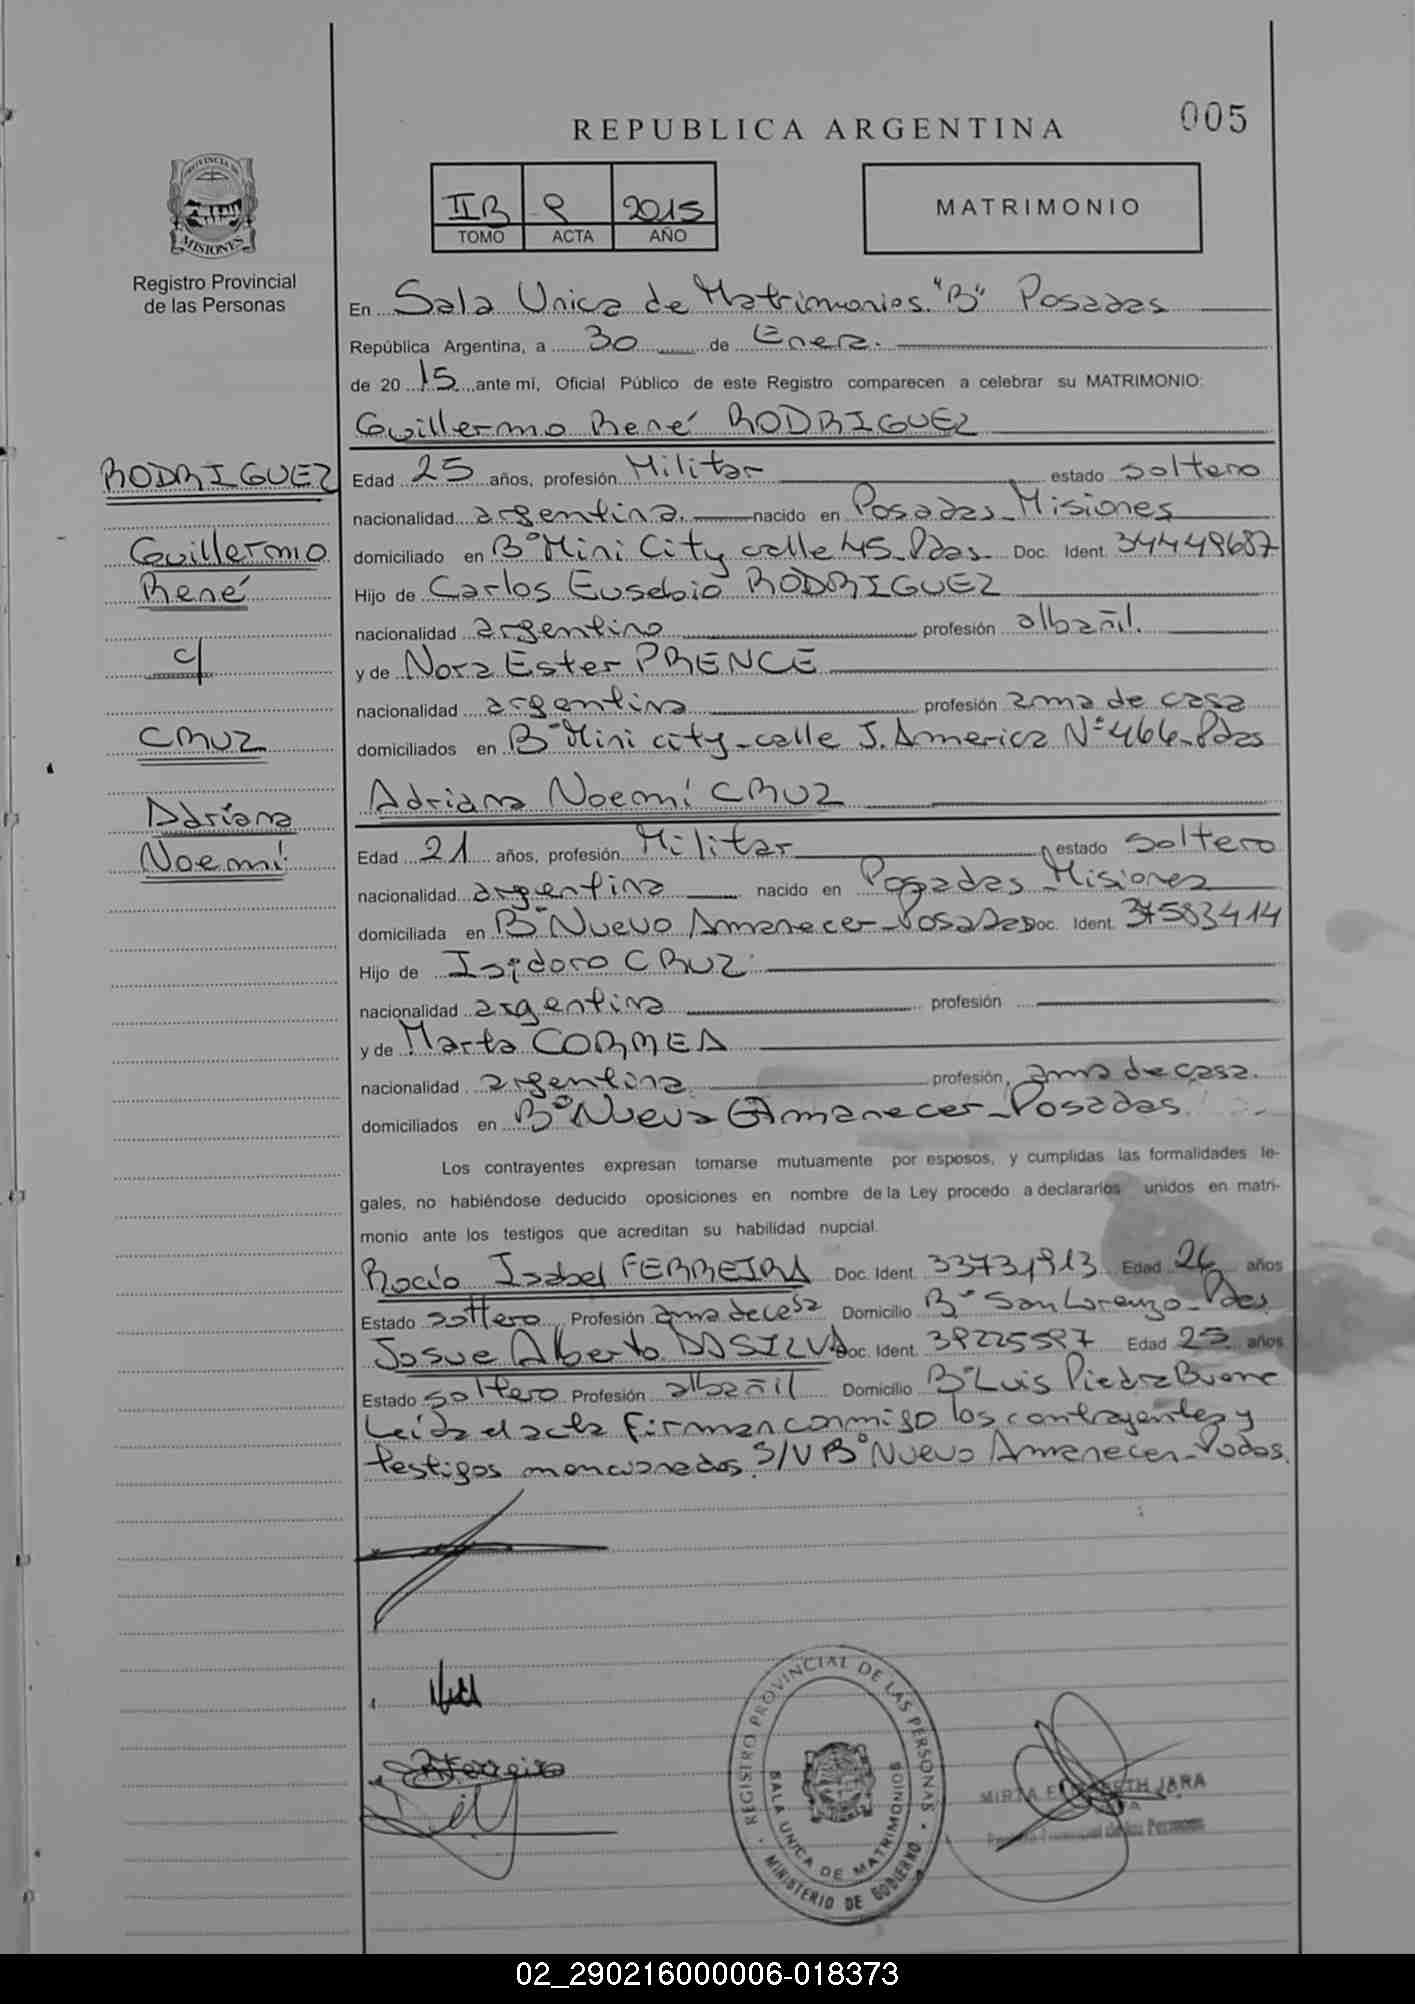 REPUBLICA ARGENTINA
005
PROVINCIA DE
MISIONES
Registro Provincial
de las Personas
IIB 2015
TOMO ACTA AÑO
MATRIMONIO
En Sala Unica de Matrimonios "B" Posadas
República Argentina, a 30 de Enero.
de 20 15 ante mí, Oficial Público de este Registro comparecen a celebrar su MATRIMONIO:
Guillermo René RODRIGUEZ
RODRIGUEZ
Guillermo
René
c/
CRUZ
Adriana
Noemí
Edad 25 años, profesión Militar estado soltero
nacionalidad argentina. nacido en Posadas-Misiones
domiciliado en B° Mini City calle 45-Pdas- Doc. Ident. 34449687
Hijo de Carlos Eusebio RODRIGUEZ
nacionalidad argentino profesión albañil.
y de Nora Ester PRENCE
nacionalidad argentina profesión ama de casa
domiciliados en B° Mini city-calle J. America N° 466-Pdas
Adriana Noemí CRUZ
Edad 21 años, profesión Militar estado soltero
nacionalidad argentina nacido en Posadas-Misiones
domiciliada en B° Nuevo Amanecer-Posadas Doc. Ident. 37583414
Hijo de Isidoro CRUZ
nacionalidad argentina profesión
y de Marta CORREA
nacionalidad argentina profesión, ama de casa.
domiciliados en B° Nueva Amanecer-Posadas
Los contrayentes expresan tomarse mutuamente por esposos, y cumplidas las formalidades le-
gales, no habiéndose deducido oposiciones en nombre de la Ley procedo a declararlos unidos en matri-
monio ante los testigos que acreditan su habilidad nupcial.
Rocío Isabel FERREIRA Doc. Ident. 33731913 Edad 26 años
Estado soltero Profesión ama de casa Domicilio B° San Lorenzo-Pdas
Josue Alberto DASILVA Doc. Ident. 38225597 Edad 25 años
Estado soltero Profesión albañil Domicilio B° Luis Piedra Buena
Leída el acta firman conmigo los contrayentes y
testigos mencionados. S/V B° Nuevo Amanecer-Podas.
REGISTRO PROVINCIAL DE LAS PERSONAS
SALA UNICA DE MATRIMONIOS
MINISTERIO DE GOBIERNO
MIRTA ELIZABETH JARA
Registro Provincial de las Personas
02_290216000006-018373